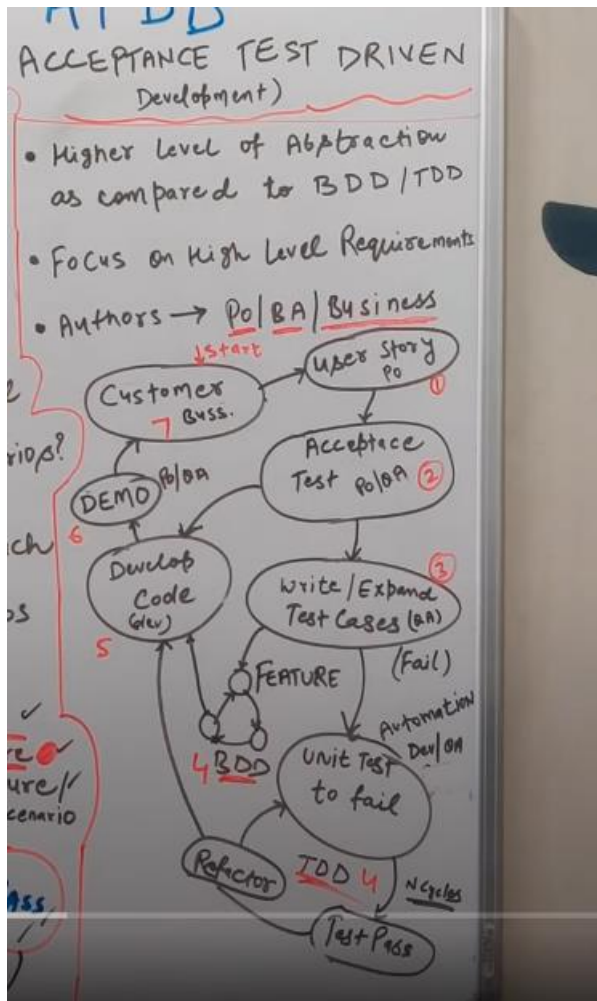 ATDD
ACCEPTANCE TEST DRIVEN
Development)
• Higher Level of Abstraction
as compared to BDD/TDD
• Focus on High Level Requirements
• Authors → Po/BA/Business
↓Start
Customer
7 Buss.
User Story
Po
1
Acceptace
Test Po/QA 2
DEMO Po/QA
6
Develop
Code
(dev)
5
3
Write/Expand
Test Cases (QA)
(Fail)
FEATURE
4 BDD
Automation
Dev/QA
Unit Test
to fail
Refactor
TDD 4
N Cycles
Test Pass
rios?
ch
os
re
ure/
cenario
ASS